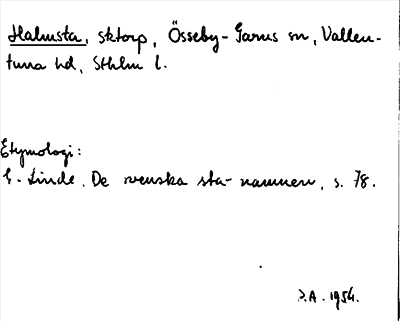 Halmsta, sktorp, Össeby-Garns sn, Vallen-
tuna hd, Sthlm l.
Etymologi:
E. Linde, De svenska sta-namnen, s. 78.
D.A. 1954.